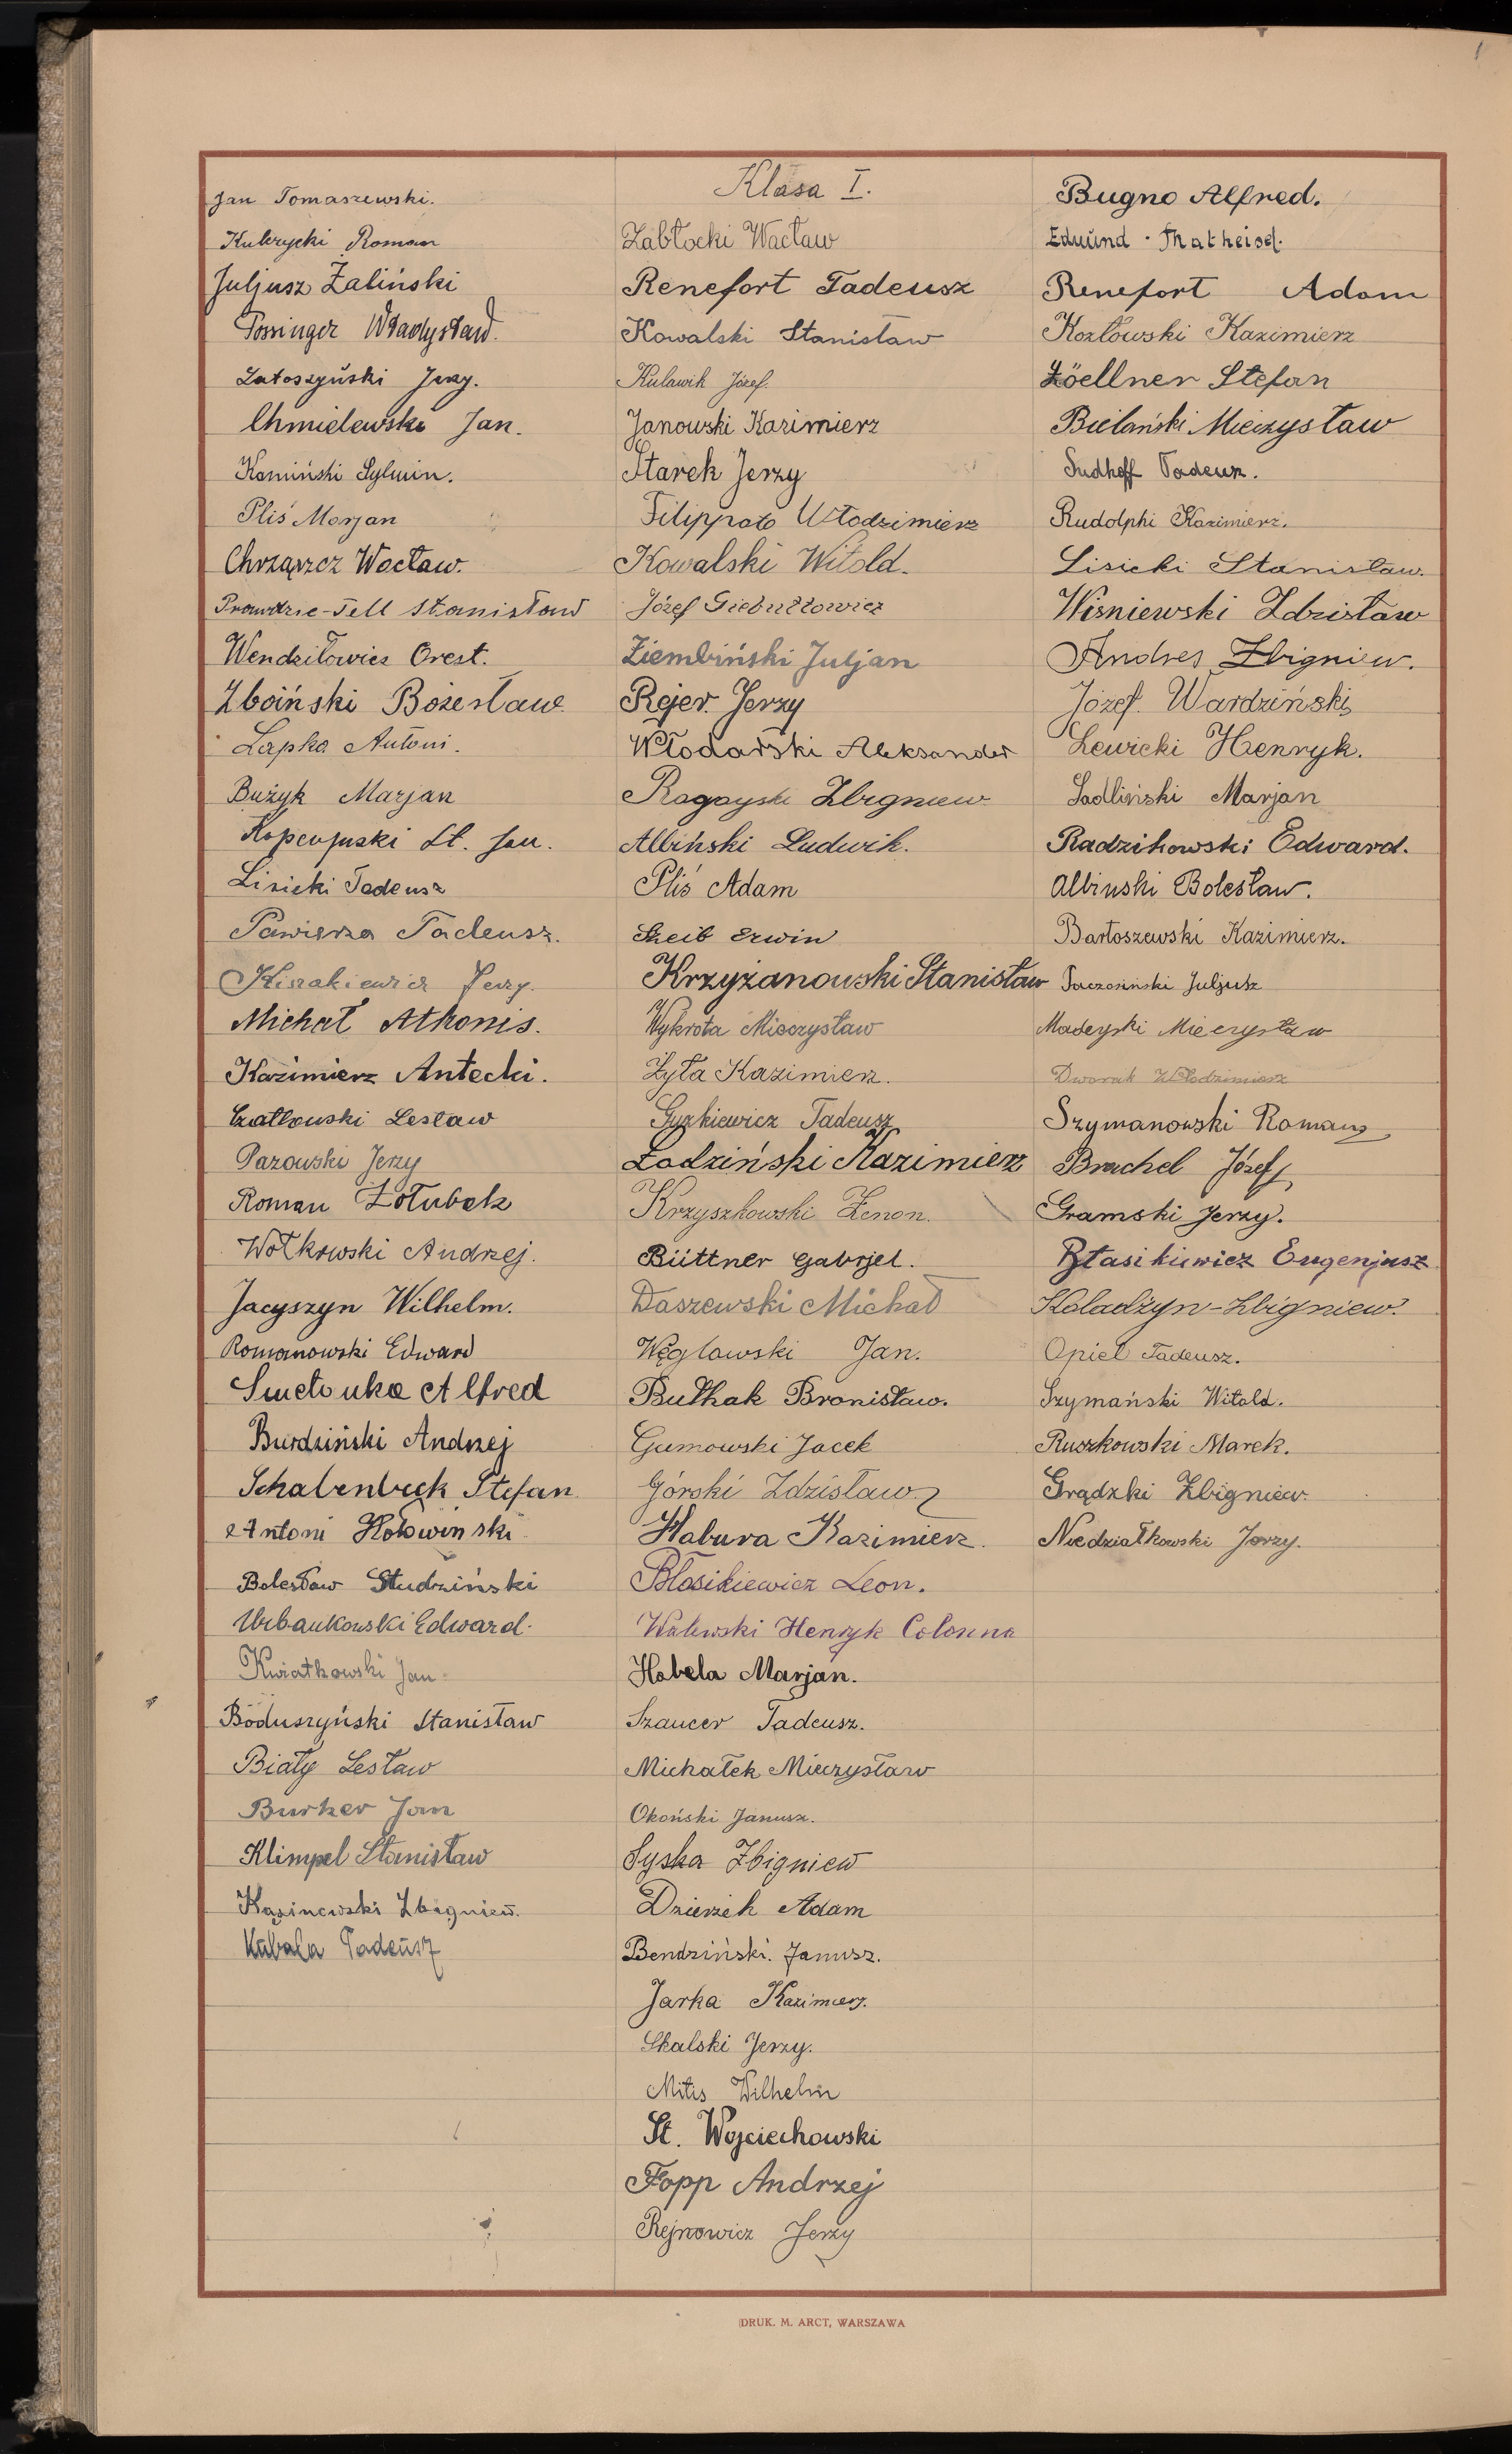 Jan Tomaszewski.
Kulczycki Roman
Juljusz Żaliński
Possinger Władysław.
Zatoszyński Jerzy.
Chmielewski Jan.
Kamiński Sylwin.
Pliś Marjan
Chrząszcz Wacław.
Prawdzic-Tell Stanisław
Wendziłowicz Orest.
Zboiński Bożesław
Łapka Antoni.
Bużyk Marjan
St. Jan.
Lisicki Tadeusz
Pawierza Tadeusz.
Jerzy.
Michał Atkonis.
Kazimierz Antecki.
Lesław
Parowski Jerzy
Roman Żołubak
Wołkowski Andrzej.
Jacyszyn Wilhelm.
Romanowski Edward
Smetonka Alfred
Burdziński Andrzej
Schabenbeck Stefan
Antoni Hołowiński
Bolesław Studziński
Urbankowski Edward.
Kwiatkowski Jan
Boduszyński Stanisław
Biały Lesław
Burker Jan
Klimpel Stanisław
Kazinowski Zbigniew.
Kubala Tadeusz
Klasa I.
Zabłocki Wacław
Renefort Tadeusz
Kowalski Stanisław
Kulawik Józef.
Janowski Kazimierz
Starek Jerzy
Filippato Włodzimierz
Kowalski Witold.
Józef Giebułtowicz
Ziembiński Juljan
Rejer Jerzy
Włodarski Aleksander
Rogoyski Zbigniew
Albiński Ludwik.
Pliś Adam
Szeib Erwin
Krzyżanowski Stanisław
Wykrota Mieczysław
Żyła Kazimierz.
Gyrkiewicz Tadeusz
Łodziński Kazimierz
Krzyszkowski Zenon.
Büttner Gabrjel.
Daszewski Michał
Węglowski Jan.
Bułhak Bronisław.
Gumowski Jacek
Górski Zdzisław
Habura Kazimierz.
Błosikiewicz Leon.
Walewski Henryk Colonna
Habela Marjan.
Szancer Tadeusz.
Michałek Mieczysław
Okoński Janusz.
Syska Zbigniew
Dzierżek Adam
Bendziński. Janusz.
Jarka Kazimierz.
Skalski Jerzy.
Mitis Wilhelm
St. Wojciechowski
Fopp Andrzej
Rejnowicz Jerzy
Bugno Alfred.
Edmund Matheisel.
Renefort Adam
Kozłowski Kazimierz
Zöellner Stefan
Bielański Mieczysław
Sudhoff Tadeusz.
Rudolphi Kazimierz.
Lisicki Stanisław.
Wiśniewski Zdzisław
Andres Zbigniew.
Józef Wardziński
Lewicki Henryk.
Sadliński Marjan
Radzikowski Edward.
Albinski Bolesław.
Bartoszewski Kazimierz.
Juljusz
Madeyski Mieczysław
Dworak Włodzimierz
Szymanowski Roman
Brachel Józef
Gramski Jerzy.
Błasikiewicz Eugenjusz
Koladżyn-Zbigniew.
Opiel Tadeusz.
Szymański Witold.
Ruszkowski Marek.
Grądzki Zbigniew.
Niedziałkowski Jerzy.
DRUK. M. ARCT, WARSZAWA